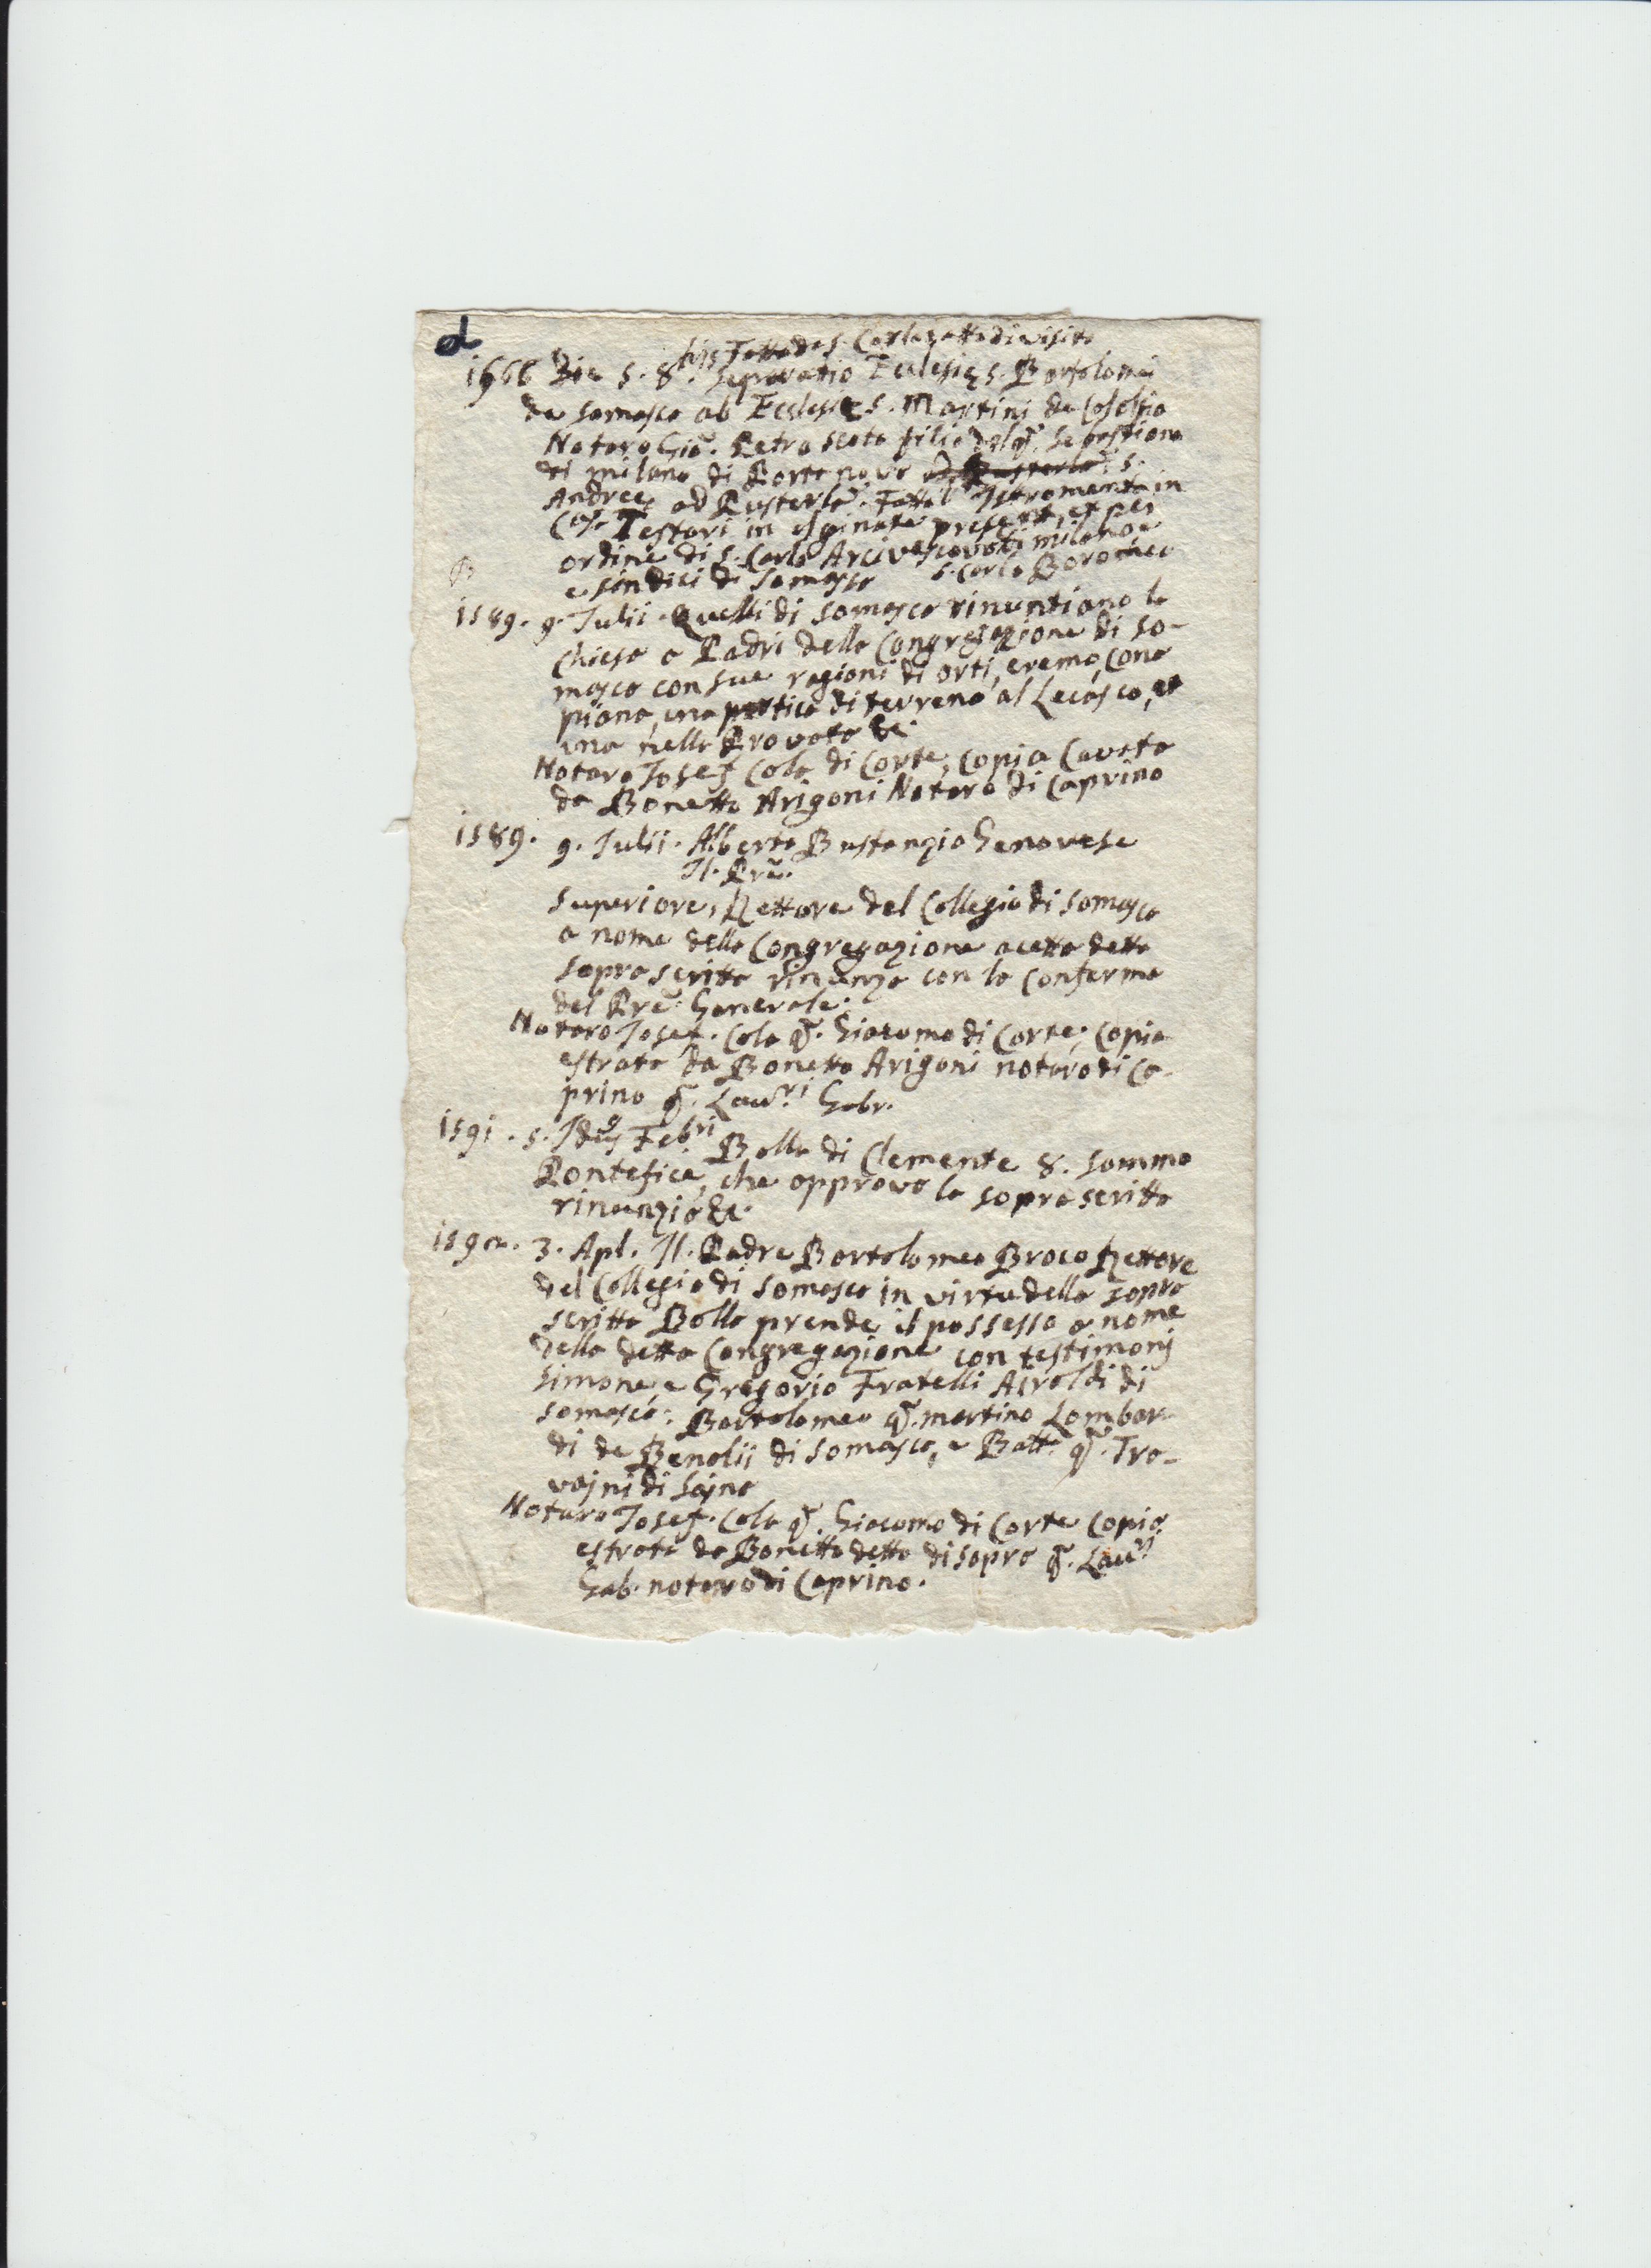 d
Fatta da S. Carlo in atto di visita
1666 Die 5. 8.bris Separatio Eclesię S. Bortolomei
de Somasca ab Eclesia S. Martini de Calolzio
Notaro Gio. Petro Scoto filio del q. Sebastiano
di milano di Porta nova S.
Andree, ad Pusterla. Fatto l'Istromento in
Casa Testori in Olginate present, et per
ordine di S. Carlo Arcivescovo di milano
e sindici di Somasca S. Carlo Boromeo
1589. 9. Julii. Quelli di Somasca rinuntiano la
Chiesa a Padri della Congregazione di So-
masca con sue ragioni di orti, eremo, cona
piana, una pertica di terreno al Lecasco, et
una nella Provata &c.
Notaro Josef Cola di Corte, copia Cavata
da Bonetto Arigoni Notaro di Caprino
1589. 9. Julii. Alberto Bustanzio Genovese
Il Pre.
superiore, Rettore del Collegio di Somasca
a nome della Congregazione acetta detta
sopra scritta rinunza con la conferma
del Pre. Generale.
Notaro Josef. Cola q. Giacomo di Corte, copia
estrata da Bonetto Arigoni notaro di Ca-
prino q. Lau.ri Gabr.
1591. 5. Idus Feb.ri Bolla di Clemente 8. sommo
Pontefice, che approva la sopra scritta
rinunzia &c.
159 3. Apl. Il Padre Bortolomeo Broco Rettore
del Collegio di Somasca in virtu della sopra
scritta Bolla prende il possesso a nome
della detta Congregazione con testimonj
Simone, e Gregorio Fratelli Airoldi di
Somasca: Bortolomeo q. martino Lombar-
di de Benolii di Somasca, e Batt. q. Tro-
vajni di Sajna
Notaro Josef. Cola q. Giacomo di Corte Copia
estrata da Bonetto detto di sopra q. Lau.ri
Gab. notaro di Caprino.